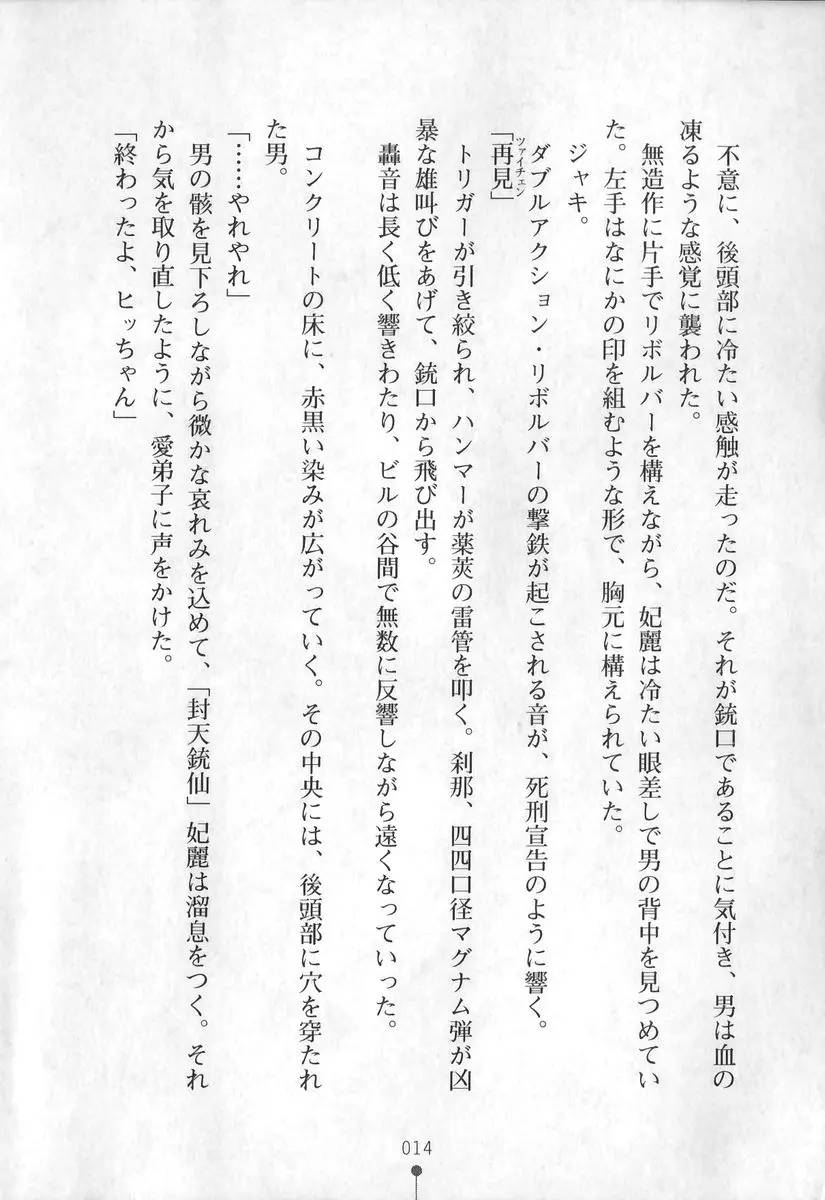 不意に、後頭部に冷たい感触が走ったのだ。それが銃口であることに気付き、男は血の
凍るような感覚に襲われた。
　無造作に片手でリボルバーを構えながら、妃麗は冷たい眼差しで男の背中を見つめてい
た。左手はなにかの印を組むような形で、胸元に構えられていた。
　ジャキ。
　ダブルアクション・リボルバーの撃鉄が起こされる音が、死刑宣告のように響く。
「再見」
ツァイチェン
　トリガーが引き絞られ、ハンマーが薬莢の雷管を叩く。刹那、四四口径マグナム弾が凶
暴な雄叫びをあげて、銃口から飛び出す。
　轟音は長く低く響きわたり、ビルの谷間で無数に反響しながら遠くなっていった。
　コンクリートの床に、赤黒い染みが広がっていく。その中央には、後頭部に穴を穿たれ
た男。
「……やれやれ」
　男の骸を見下ろしながら微かな哀れみを込めて、「封天銃仙」妃麗は溜息をつく。それ
から気を取り直したように、愛弟子に声をかけた。
「終わったよ、ヒッちゃん」
014